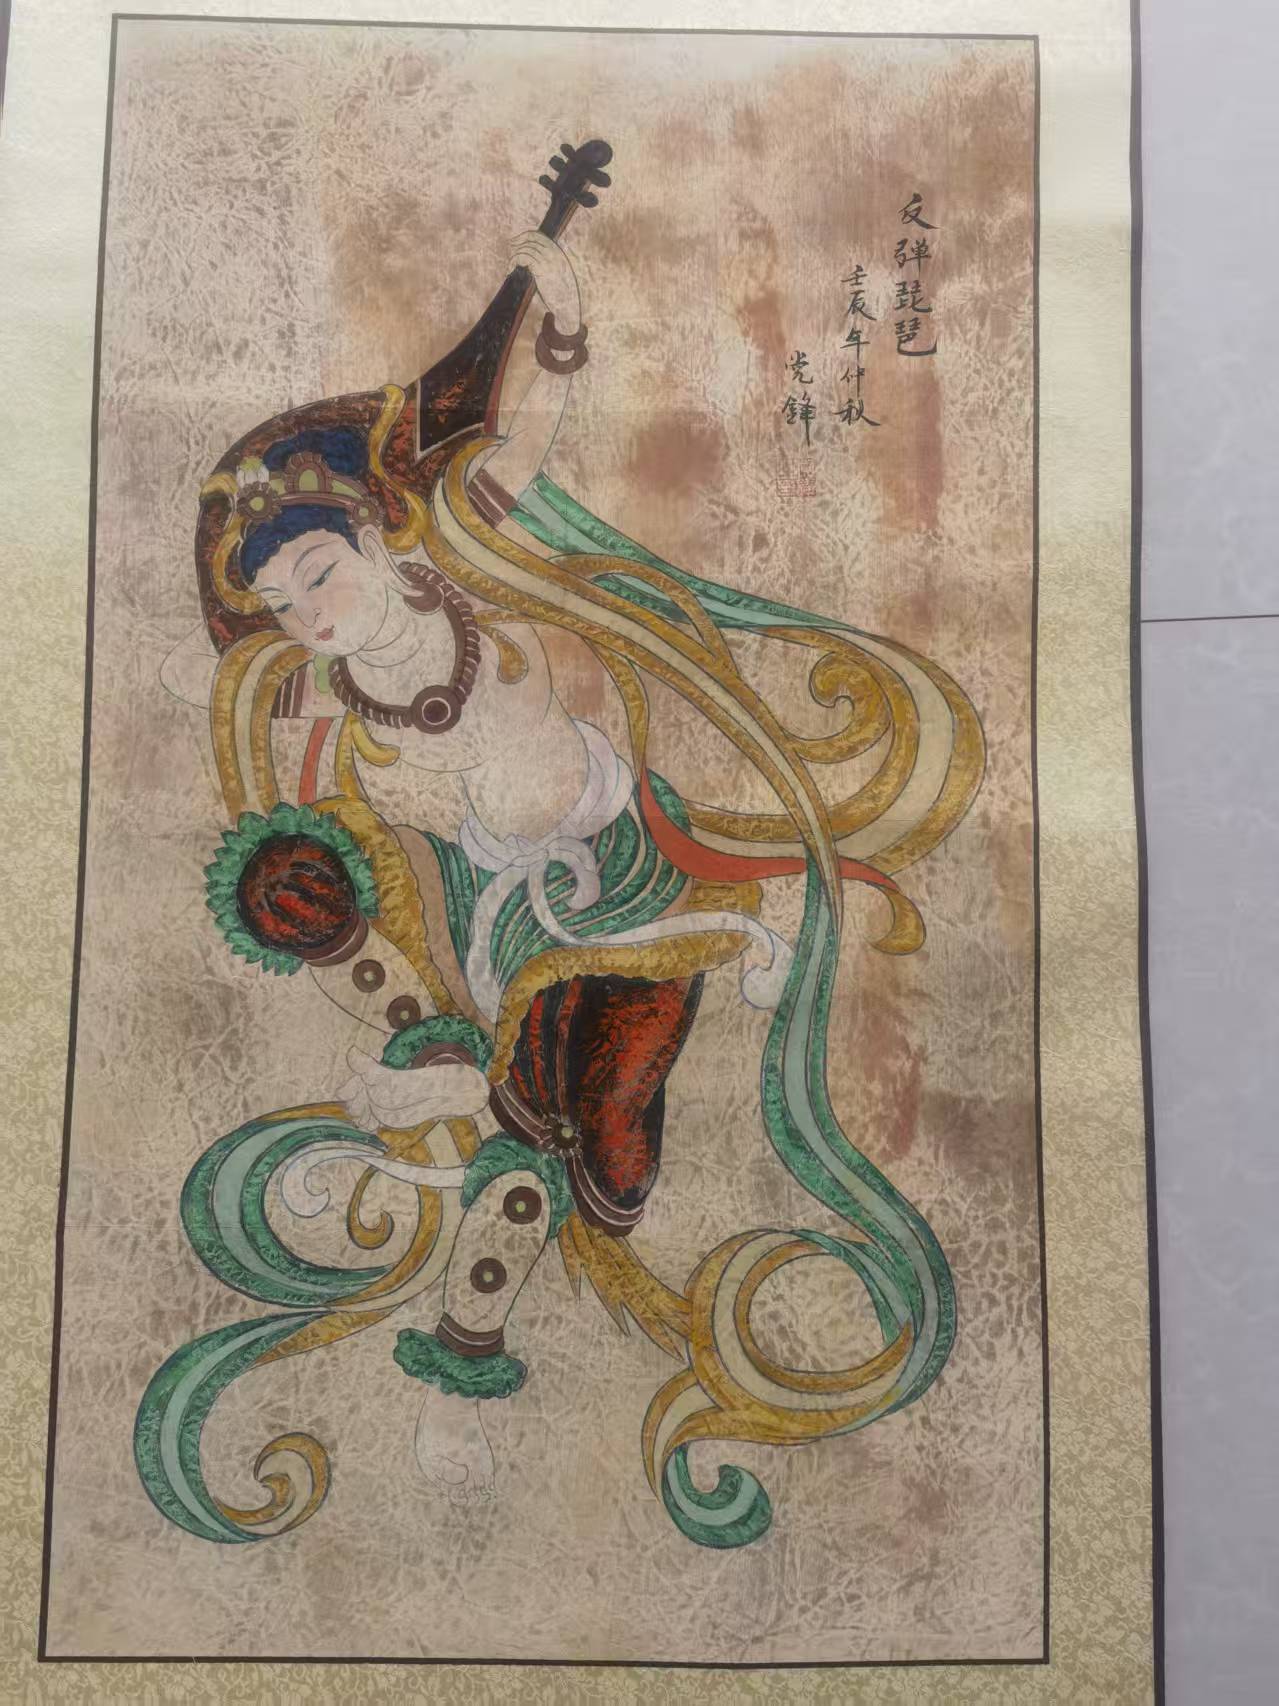 反弹琵琶
壬辰年仲秋
党锋